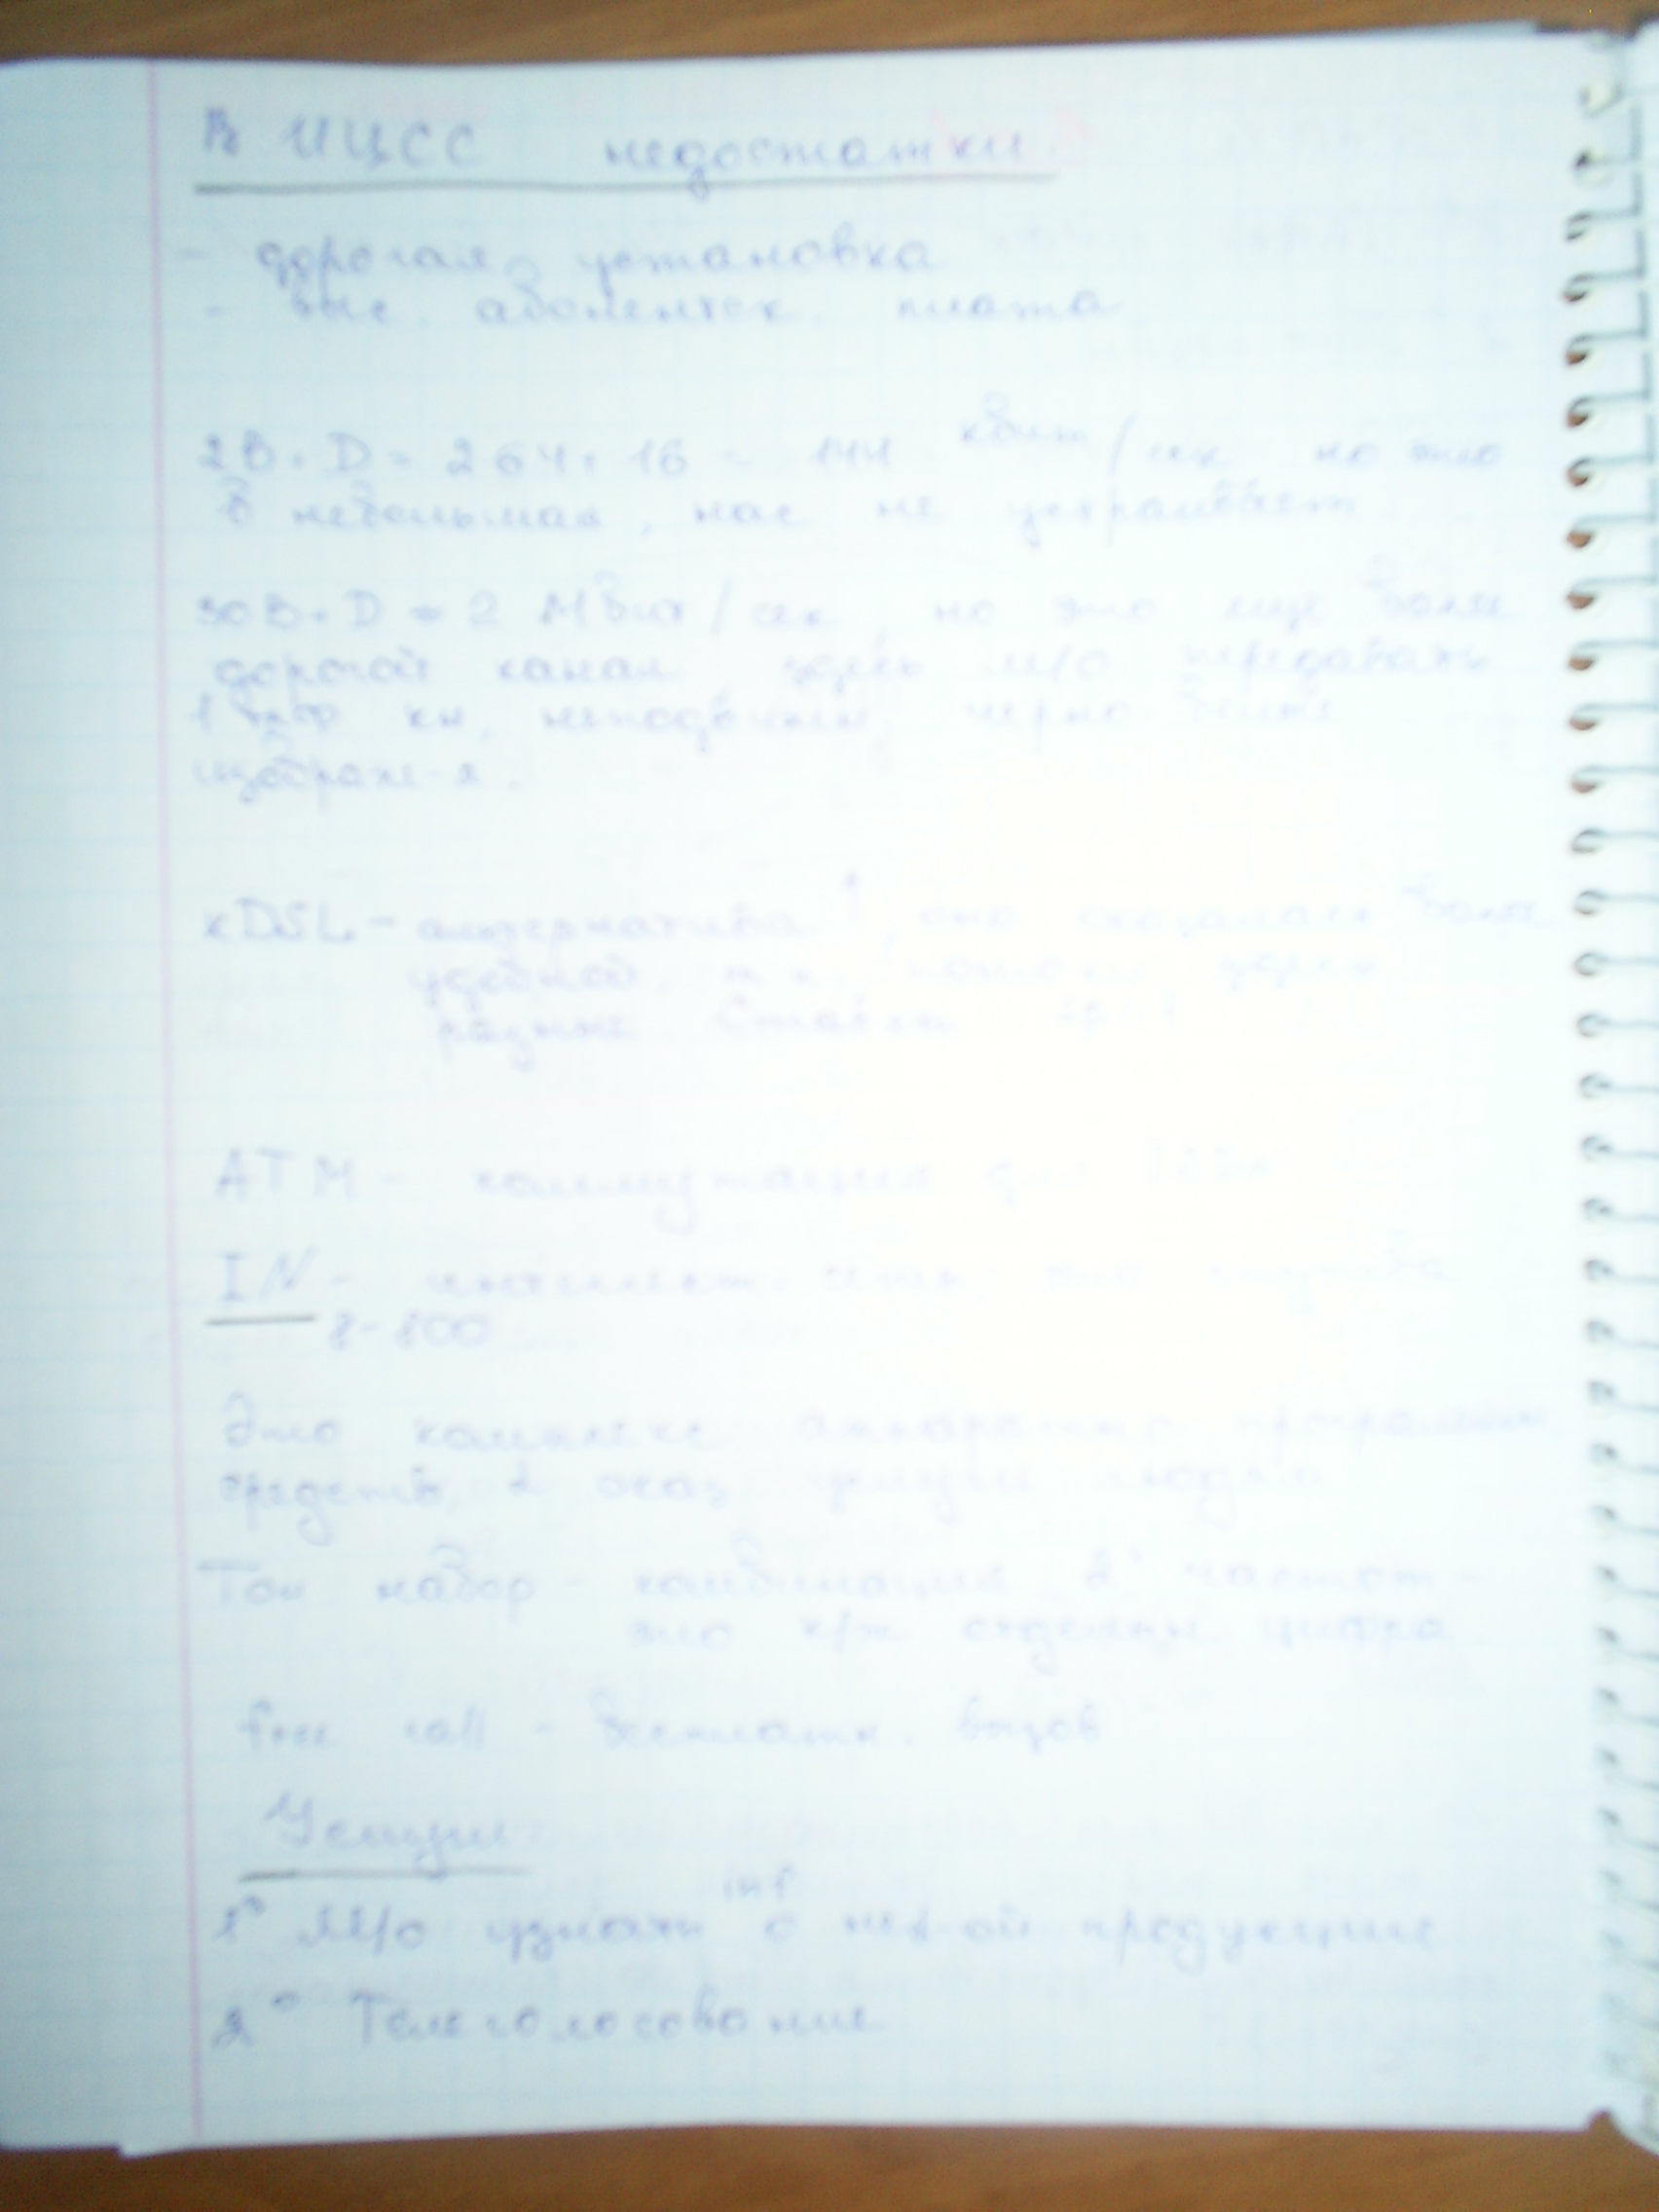 В ИЦСС недостатки
- дорогая установка
- выс. абонентск. плата
2B+D = 2·64+16 = 144 кбит/сек, но это
небольшая, нас не устраивает
30B+D = 2 Мбит/сек, но это еще более
дорогой канал здесь м/о передавать
неподвижн, черно-белые
изображ-я.
xDSL - альтернатива ↑, она оказалась более
удобной, т.к. потоки
разные
ATM - коммутация для
IN - интеллект. сеть, это служба
8-800 ...
Это комплекс аппаратно-программн
средств, оказ услуги людям
Тон набор - комбинация 2х частот -
это к/н отдельн цифра
free call - бесплатн. вызов
Услуги
inf
1° М/о узнать о нек-ой продукции
2° Телеголосование